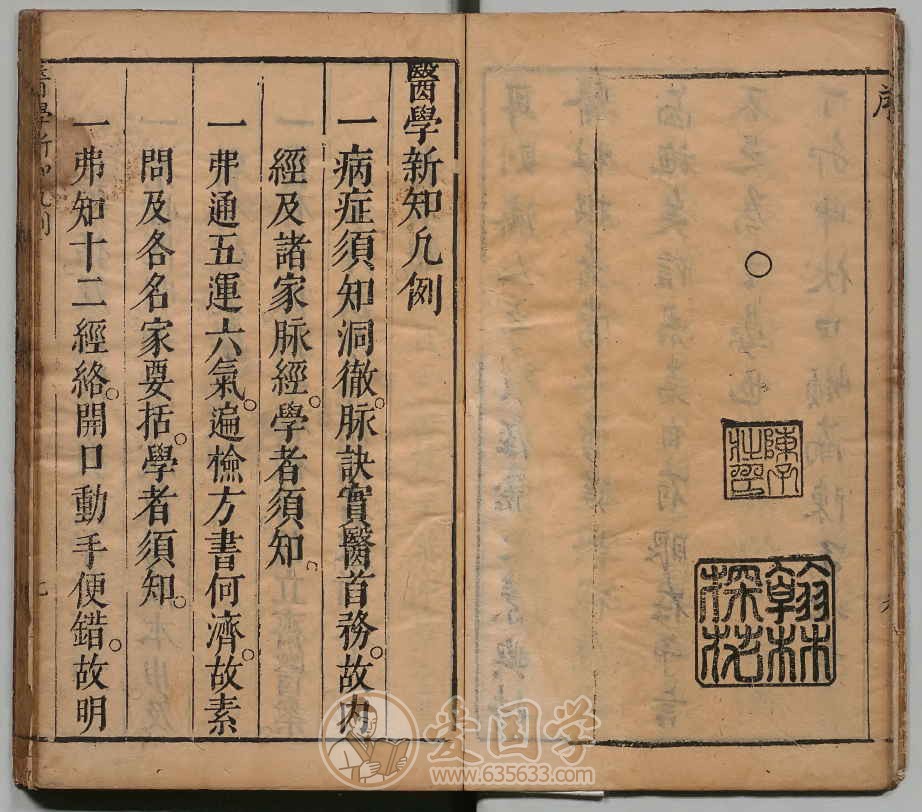 序
陳子
壯印
翰林
醫學新知凡例
一病症須知洞徹脉訣實醫首務。故内
經及諸家脉經。學者須知。
一弗通五運六氣。遍檢方書何濟。故素
問及各名家要括。學者須知。
一弗知十二經絡。開口動手便錯。故明
醫學新知凡例
爱国学
www.635633.com